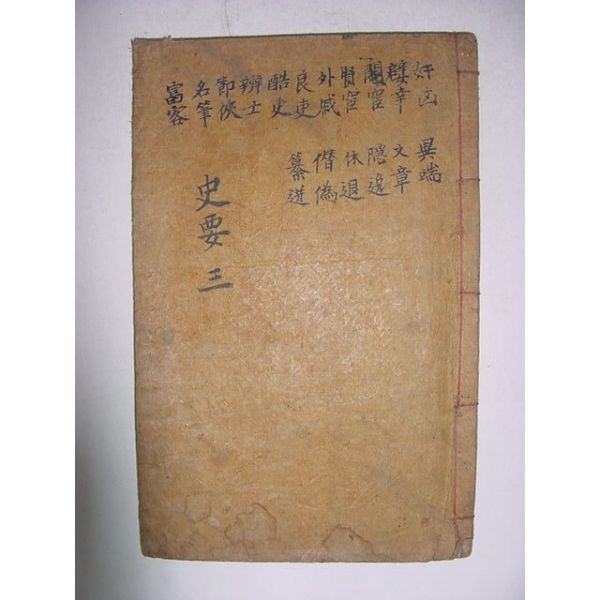 奸凶
嬖幸
閹宦
賢宦
外戚
良吏
酷吏
辨士
節俠
名筆
富客
異端
文章
隱逸
休退
僭僞
纂逆
史要 三